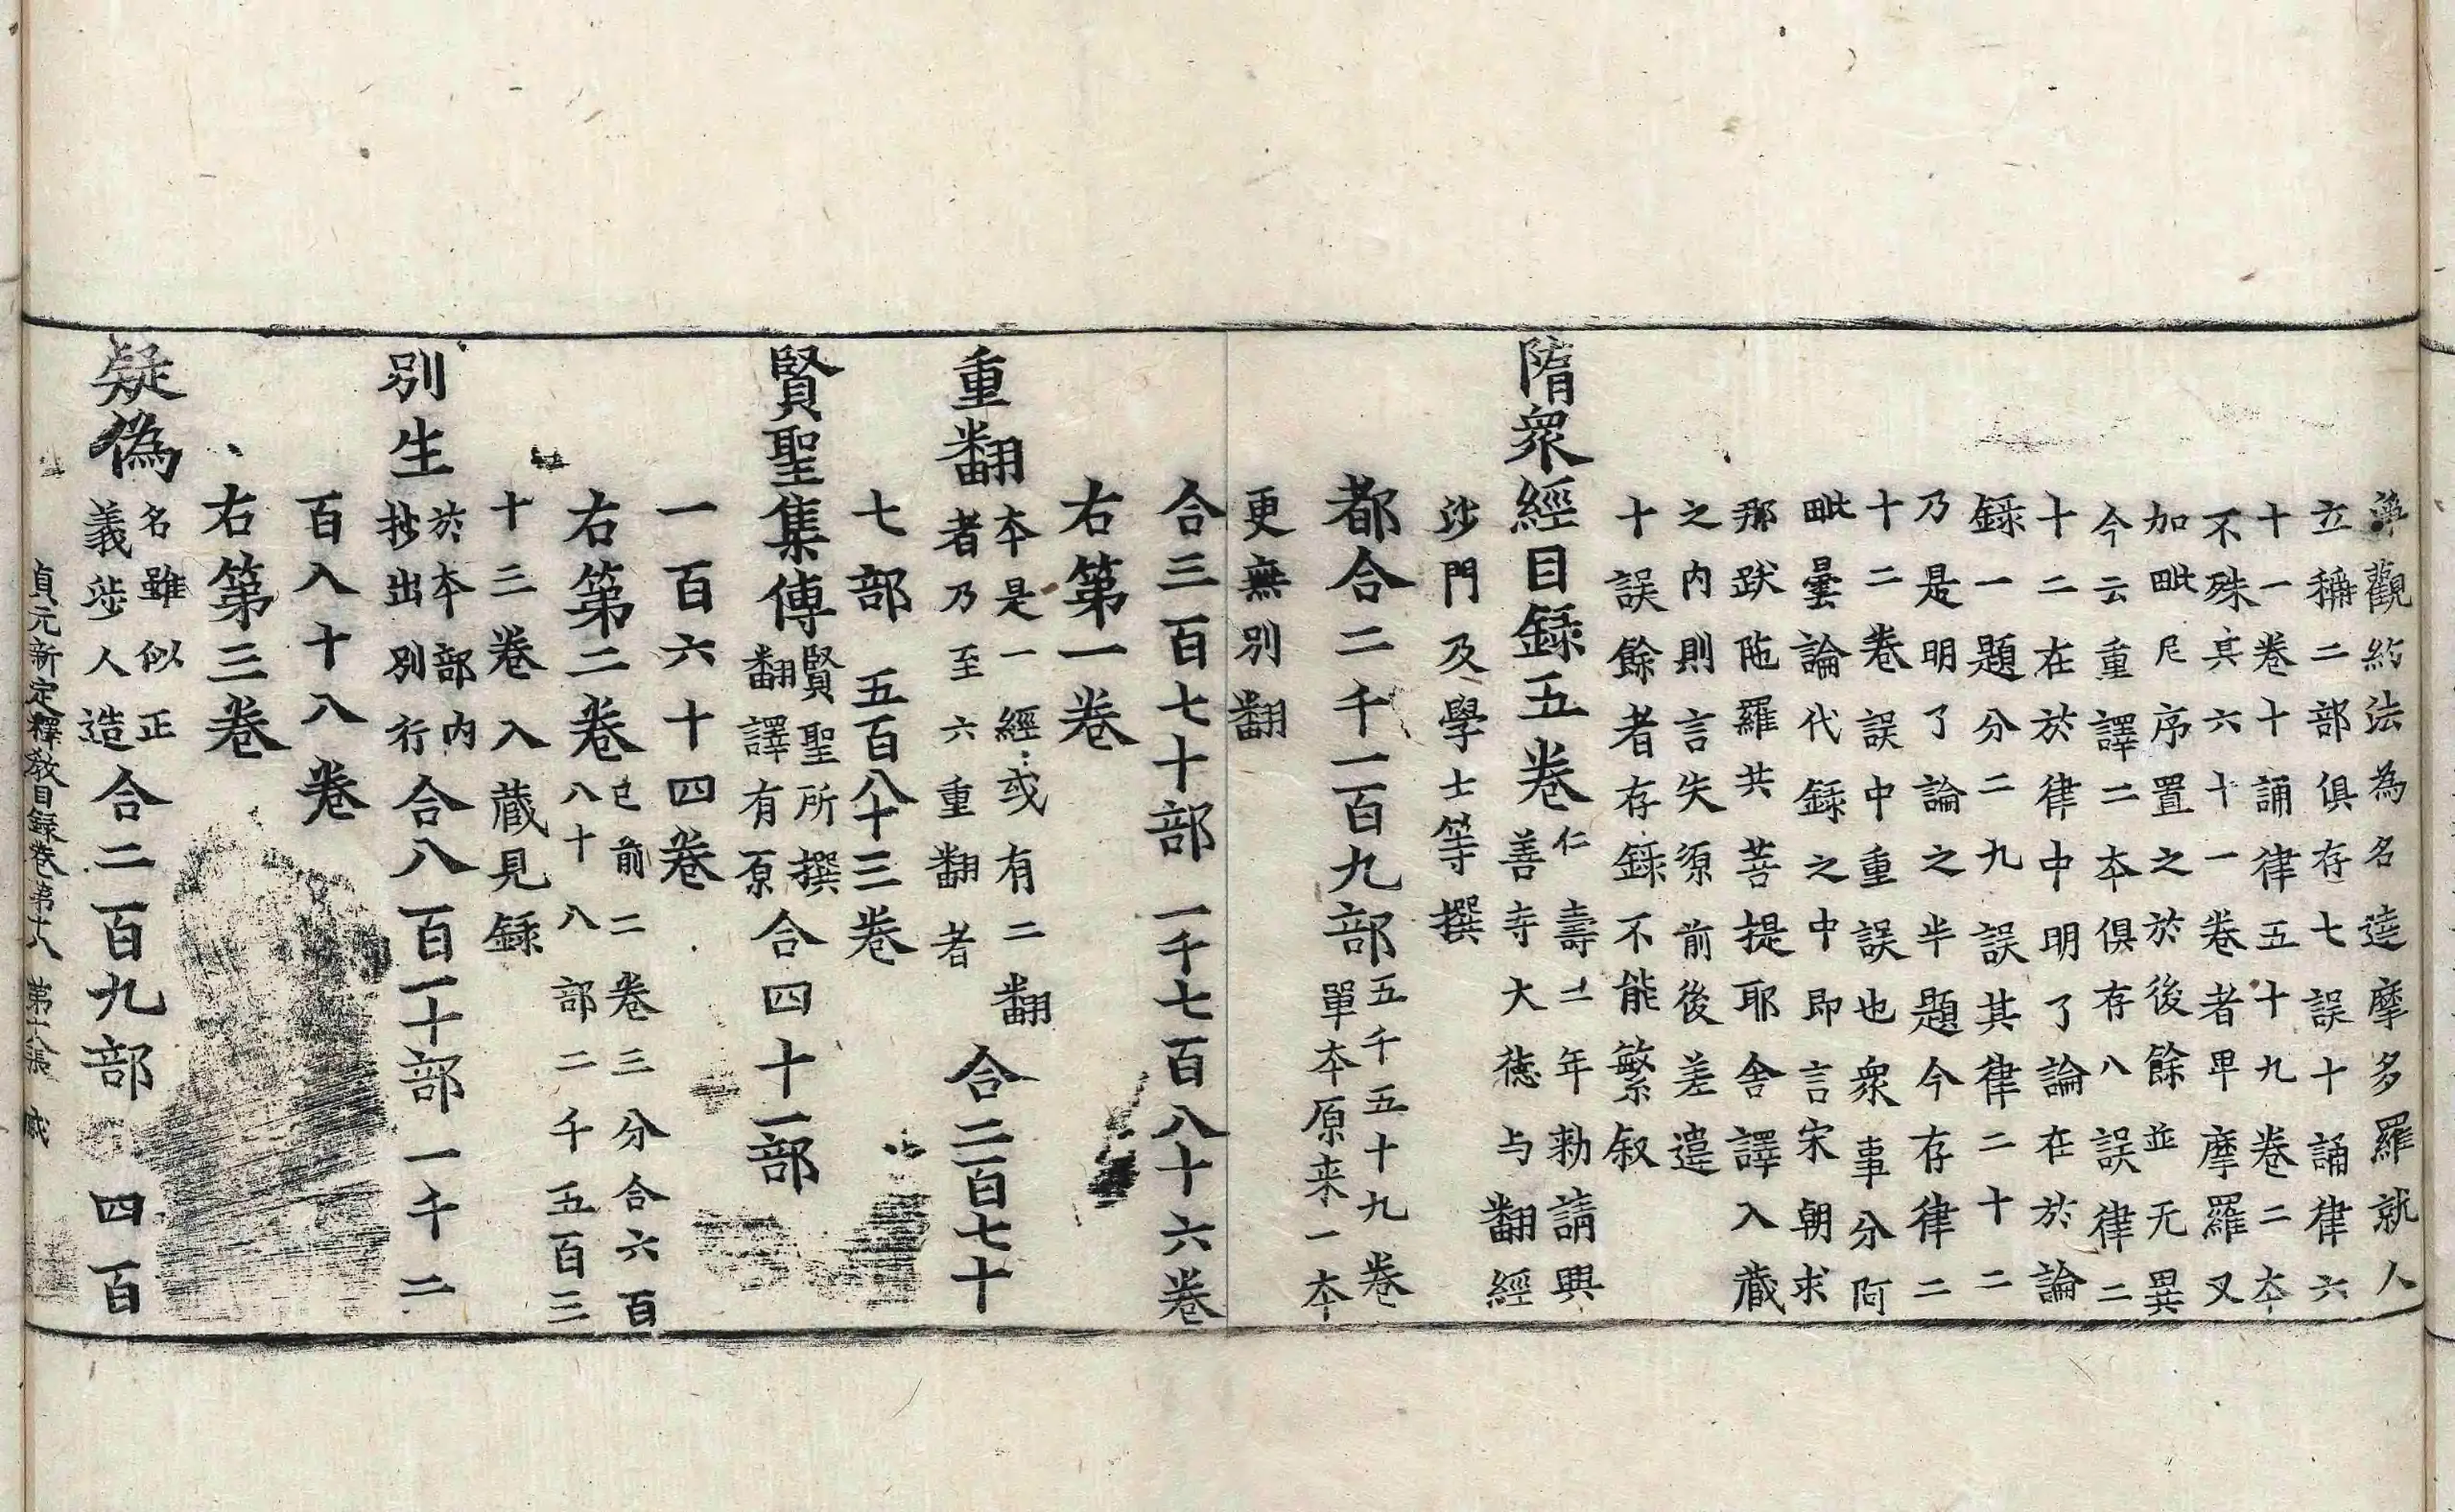 淨觀約法為名達摩多羅就人
立稱二部俱存七誤十誦律六
十一卷十誦律五十九卷二本
不殊真六十一卷者卑摩羅叉
加毗尼序置之於後餘並无異
今云重譯二本俱存八誤律二
十二在於律中明了論在於論
錄一題分二九誤其律二十二
乃是明了論之半題今存律二
十二卷誤中重誤也衆事分阿
毗曇論代錄之中即言宋朝求
那跋陁羅共菩提耶舍譯入蔵
之内則言失源前後差違
十誤餘者存錄不能繁叙
隋衆經目録五卷仁壽二年勑請興
善寺大德与翻經
沙門及學士等撰
都合二千一百九部五千五十九卷
單本原来一本
更無別翻
合三百七十部一千七百八十六卷
右第一卷
重翻本是一經或有二翻
者乃至六重翻者合二百七十
七部五百八十三卷
賢聖集傳賢聖所撰
翻譯有原合四十一部
一百六十四卷
右第二卷已前二卷三分合六百
八十八部二千五百三
十三卷入蔵見録
別生於本部内
抄出別行合八百一十部一千二
百八十八卷
右第三卷
疑偽名雖似正
義涉人造合二百九部四百
貞元新定釋教目録卷第十八 第十八張